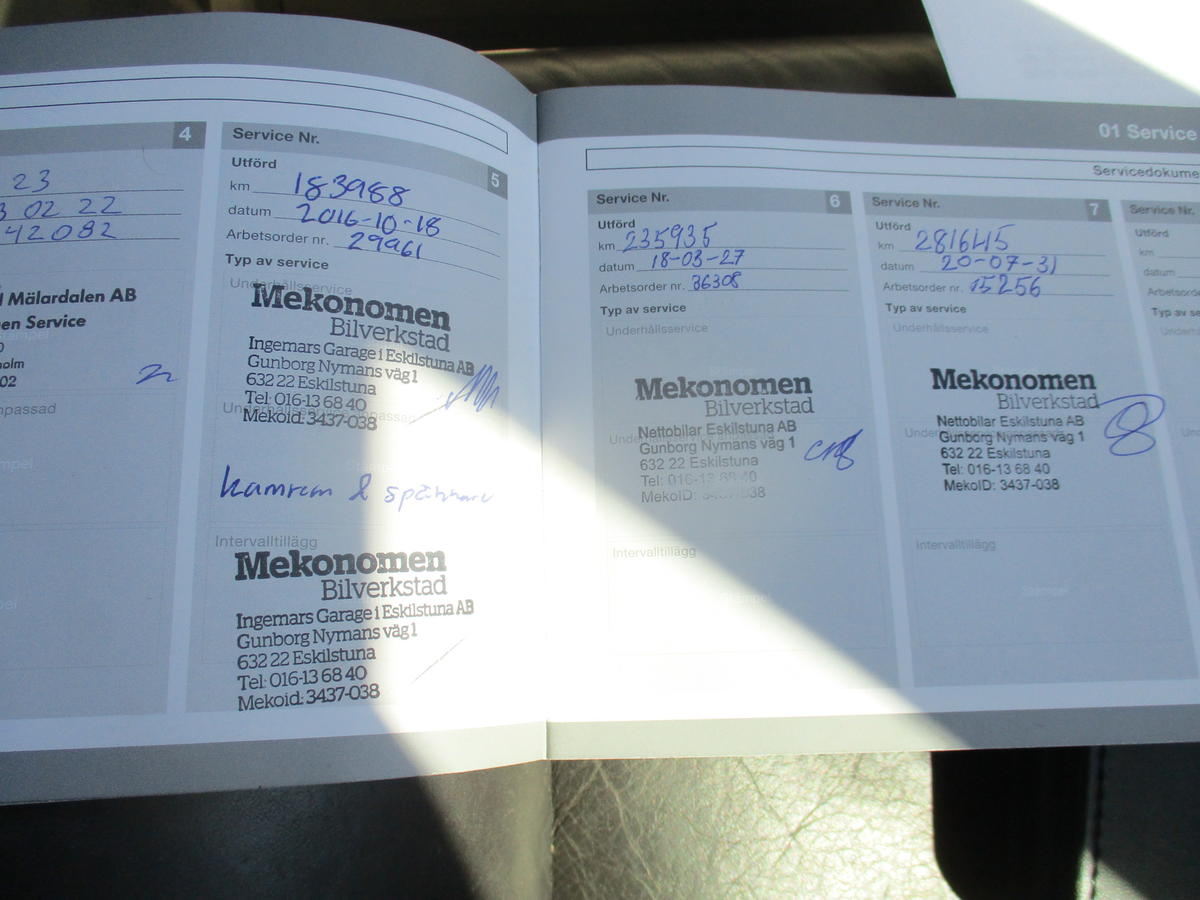 4
23
3 02 22
42082
l Mälardalen AB
en Service
0
olm
02
npassad
Service Nr.
5
Utförd
km 183988
datum 2016-10-18
Arbetsorder nr. 29961
Typ av service
Underhållsservice
Mekonomen
Bilverkstad
Ingemars Garage i Eskilstuna AB
Gunborg Nymans väg 1
632 22 Eskilstuna
Tel: 016-13 68 40
Mekoid: 3437-038
kamrem & spännare
Intervalltillägg
Mekonomen
Bilverkstad
Ingemars Garage i Eskilstuna AB
Gunborg Nymans väg 1
632 22 Eskilstuna
Tel: 016-13 68 40
Mekoid: 3437-038
01 Service
Servicedokume
Service Nr.
6
Utförd
km 235935
datum 18-03-27
Arbetsorder nr. 36308
Typ av service
Underhållsservice
Mekonomen
Bilverkstad
Nettobilar Eskilstuna AB
Gunborg Nymans väg 1
632 22 Eskilstuna
Tel: 016-13 68 40
MekoID: 3437-038
Intervalltillägg
Stämpel
Service Nr.
7
Utförd
km 281645
datum 20-07-31
Arbetsorder nr. 15256
Typ av service
Underhållsservice
Mekonomen
Bilverkstad
Nettobilar Eskilstuna AB
Gunborg Nymans väg 1
632 22 Eskilstuna
Tel: 016-13 68 40
MekoID: 3437-038
Intervalltillägg
Stämpel
Service Nr.
Utförd
km
datum
Arbetsorde
Typ av se